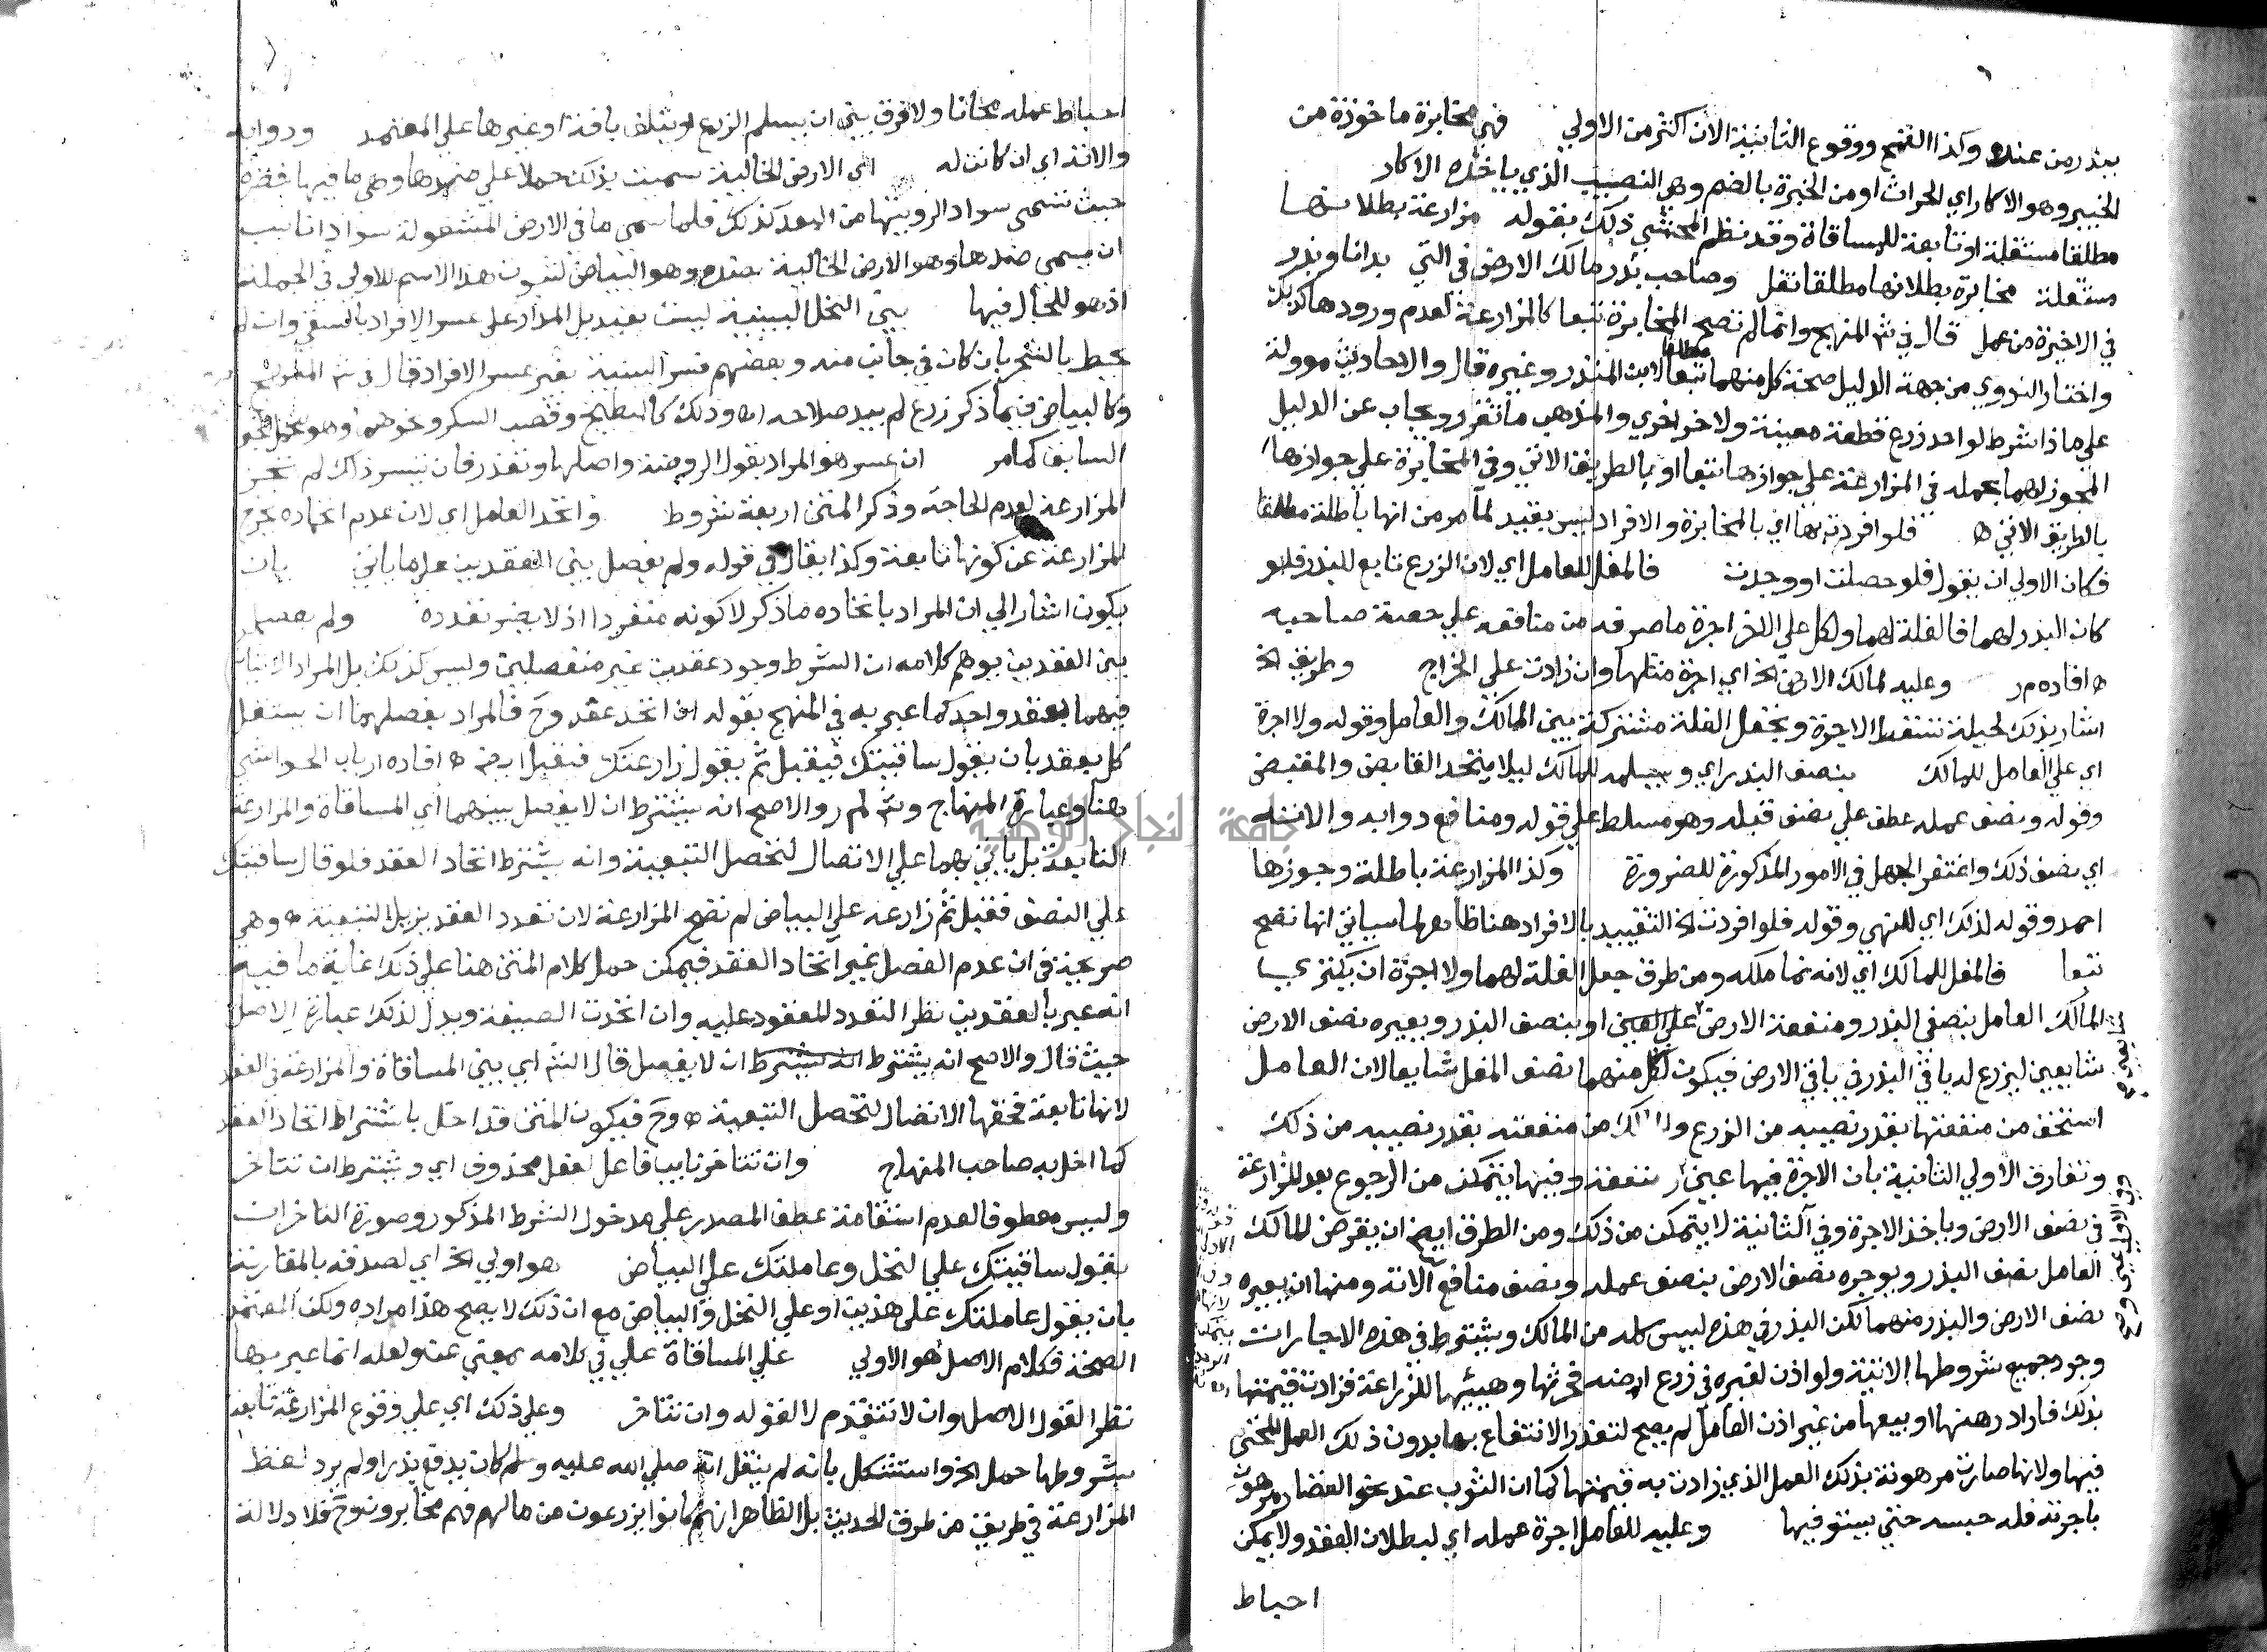 ببذر من عنده وكذا الفتح ووقوع الثانية الان اكثر من الاولي فهي مخابرة ماخوذة من
الخبير وهو الاكار اي الحراث او من الخبرة بالضم وهي النصيب الذي ياخذه الاكار
مطلقا مستقلة او تابعة للمساقاة وقد نظم المحشي ذلك بقوله مزارعة بطلانها
مستقلة مخابرة بطلانها مطلقا نقل وصاحب بذر مالك الارض في التي بدانا وبذر
في الاخيرة من عمل قال في شم المنهج وانما لم تصح المخابرة تبعا كالمزارعة لعدم ورودها كذلك
واختار النووي من جهة الدليل صحة كل منهما مطلقا تبعا لابن المنذر وغيره قال والاحاديث موولة
علي ما اذا شرط لواحد زرع قطعة معينة ولاخر اخري والمذهب ما تقرر ويجاب عن الدليل
المجوز لهما بحمله في المزارعة علي جوازها تبعا او بالطريق الاتي وفي المخابرة علي جوازها
بالطريق الاتي ه فلو افردت هنا اي بالمخابرة والافراد ليس بقيد لما مر من انها باطلة مطلقا
فكان الاولي ان يقول فلو حصلت او وجدت فالمغل للعامل اي لان الزرع تابع للبذر فلو
كان البذر لهما فالغلة لهما ولكل علي الاخر اجرة ما صرفه من منافعه علي حصة صاحبه
ه افاده مر وعليه لمالك الارض الخ اي اجرة مثلها وان زادت علي الخراج وطريق الخ
اشار بذلك لحيلة تسقط الاجرة وتجعل الغلة مشتركة بين المالك والعامل وقوله ولا اجرة
اي علي العامل للمالك بنصف البذر اي ويسلمه للمالك ليلا يتحد القابض والمقبض
وقوله ونصف عمله عطف علي نصف قبله وهو مسلط علي قوله ومنافع دوابه والاته
اي نصف ذلك واغتفر الجهل في الامور المذكورة للضرورة وكذا المزارعة باطلة وجوزها
احمد وقوله لذلك اي للنهي وقوله فلو افردت الخ التقييد بالافراد هنا ظاهر لما سياتي انها تصح
تبعا فالمغل للمالك اي لانه نما ملكه ومن طرق جعل الغلة لهما ولا اجرة ان يكتري
المالك العامل بنصفي البذر ومنفعة الارض علي العين او بنصف البذر ويعيره نصف الارض
شايعين ليزرع له باقي البذر في باقي الارض فيكون لكل منهما نصف المغل شايعا لان العامل
استحق من منفعتها بقدر نصيبه من الزرع والمالك من منفعته بقدر نصيبه من ذلك
وتفارق الاولي الثانية بان الاجرة فيها عين ومنفعة وفيها يتمكن من الرجوع بعد المزارعة
في نصف الارض وياخذ الاجرة وفي الثانية لا يتمكن من ذلك ومن الطرق ايضا ان يقرض المالك
العامل نصف البذر ويوجره نصف الارض بنصف عمله ونصف منافع الاته ومنها ان يعيره
نصف الارض والبذر منهما لكن البذر في هذه ليس كله من المالك ويشترط في هذه الاجارات
وجود جميع شروطها الاتية ولو اذن لغيره في زرع ارضه فحرثها وهيئها للزراعة فزادت قيمتها
بذلك فاراد رهنها او بيعها من غير اذن العامل لم يصح لتعذر الانتفاع بها بدون ذلك العمل المحترم
فيها ولانها صارت مرهونة بذلك العمل الذي زادت به قيمتها كما ان الثوب عند نحو القصار مرهون
باجرته فله حبسه حتي يستوفيها وعليه للعامل اجرة عمله اي لبطلان العقد ولا يمكن
احباط
احباط عمله مجانا ولا فرق بين ان يسلم الزرع او يتلف بافة او غيرها علي المعتمد ودوابه
والاته اي ان كانت له اي الارض الخالية سميت بذلك حملا علي ضدها وهي ما فيها خضرة
حيث تسمي سواد الرويتها من البعد كذلك فلما سمي ما في الارض المشغولة سوادا ناسب
ان يسمي ضدها وهو الارض الخالية بضده وهو البياض لثبوت هذا الاسم للاولي في الجملة
اذ هو للحال فيها بين النخل البينية ليست بقيد بل المدار علي عسر الافراد بالسقي وان لم
يحط بالشجر بان كان في جانب منه وبعضهم فسر البينية بغير عسر الافراد قال في شم المنهج
وكالبياض فيما ذكر زرع لم يبد صلاحه اه وذلك كالبطيخ وقصب السكر ونحوهما وهو
السابق كما مر ان عسر هو المراد بقول الروضة واصلها وتعذر فان تيسر ذلك لم تجز
المزارعة لعدم الحاجة وذكر المتن اربعة شروط واتحد العامل اي لان عدم اتحاده يخرج
المزارعة عن كونها تابعة وكذا يقال في قوله ولم يفصل بين العقدين علي ما ياتي بان
يكون اشار الي ان المراد باتحاده ما ذكر لا كونه منفردا اذ لا يضر تعدده ولم يفصل
بين العقدين يوهم كلامه ان الشرط وجود عقدين غير منفصلين وليس كذلك بل المراد الاتيان
فيهما بعقد واحد كما عبر به في المنهج بقوله ان اتحد عقد وح فالمراد بفصلهما ان يستقل
كل بعقد بان يقول ساقيتك فيقبل ثم يقول زارعتك فيقبل ايضا ه افاده ارباب الحواشي
هنا وعبارة المنهاج وشم لم ر والاصح انه يشترط ان لا يفصل بينهما اي المساقاة والمزارعة
التابعة بل ياتي بهما علي الاتصال لتحصل التبعية وانه يشترط اتحاد العقد فلو قال ساقيتك
علي النصف فقبل ثم زارعه علي البياض لم تصح المزارعة لان تعدد العقد يزيل التبعية ه وهي
صريحة في ان عدم الفصل غير اتحاد العقد فيمكن حمل كلام المتن هنا علي ذلك غاية ما فيه
انه عبر بالعقدين نظر التعدد المعقود عليه وان اتحدت الصيغة ويدل لذلك عبارة الاصل
حيث قال والاصح انه يشترط انه يشترط ان لا يفصل قال الشم اي بين المساقاة والمزارعة في العقد
لانها تابعة فحقها الاتصال لتحصل التبعية ه وح فيكون المتن قد اخل باشتراط اتحاد العقد
كما اخل به صاحب المنهاج وان تتاخر نايب فاعل لفعل محذوف اي ويشترط ان تتاخر
وليس معطوفا لعدم استقامة عطف المصدر علي مدخول الشرط المذكور وصورة التاخر ان
يقول ساقيتك علي النخل وعاملتك علي البياض هو اولي الخ اي لصدقه بالمقارنة
بان يقول عاملتك علي هذين او علي النخل والبياض مع ان ذلك لا يصح هذا مراده ولكن المعتمد
الصحة فكلام الاصل هو الاولي علي المساقاة علي في كلامه بمعني عن ولعله انما عبر بها
نظرا لقول الاصل وان لا تتقدم لا لقوله وان تتاخر وعلي ذلك اي علي وقوع المزارعة تابعة
بشروطها حمل الخ واستشكل بانه لم ينقل انه صلي الله عليه وسلم كان يدفع بذرا ولم يرد لفظ
المزارعة في طريق من طرق الحديث بل الظاهر انهم كانوا يزرعون من مالهم فهم مخابرون وح فلا دلالة
جامعة النجاح الوطنية